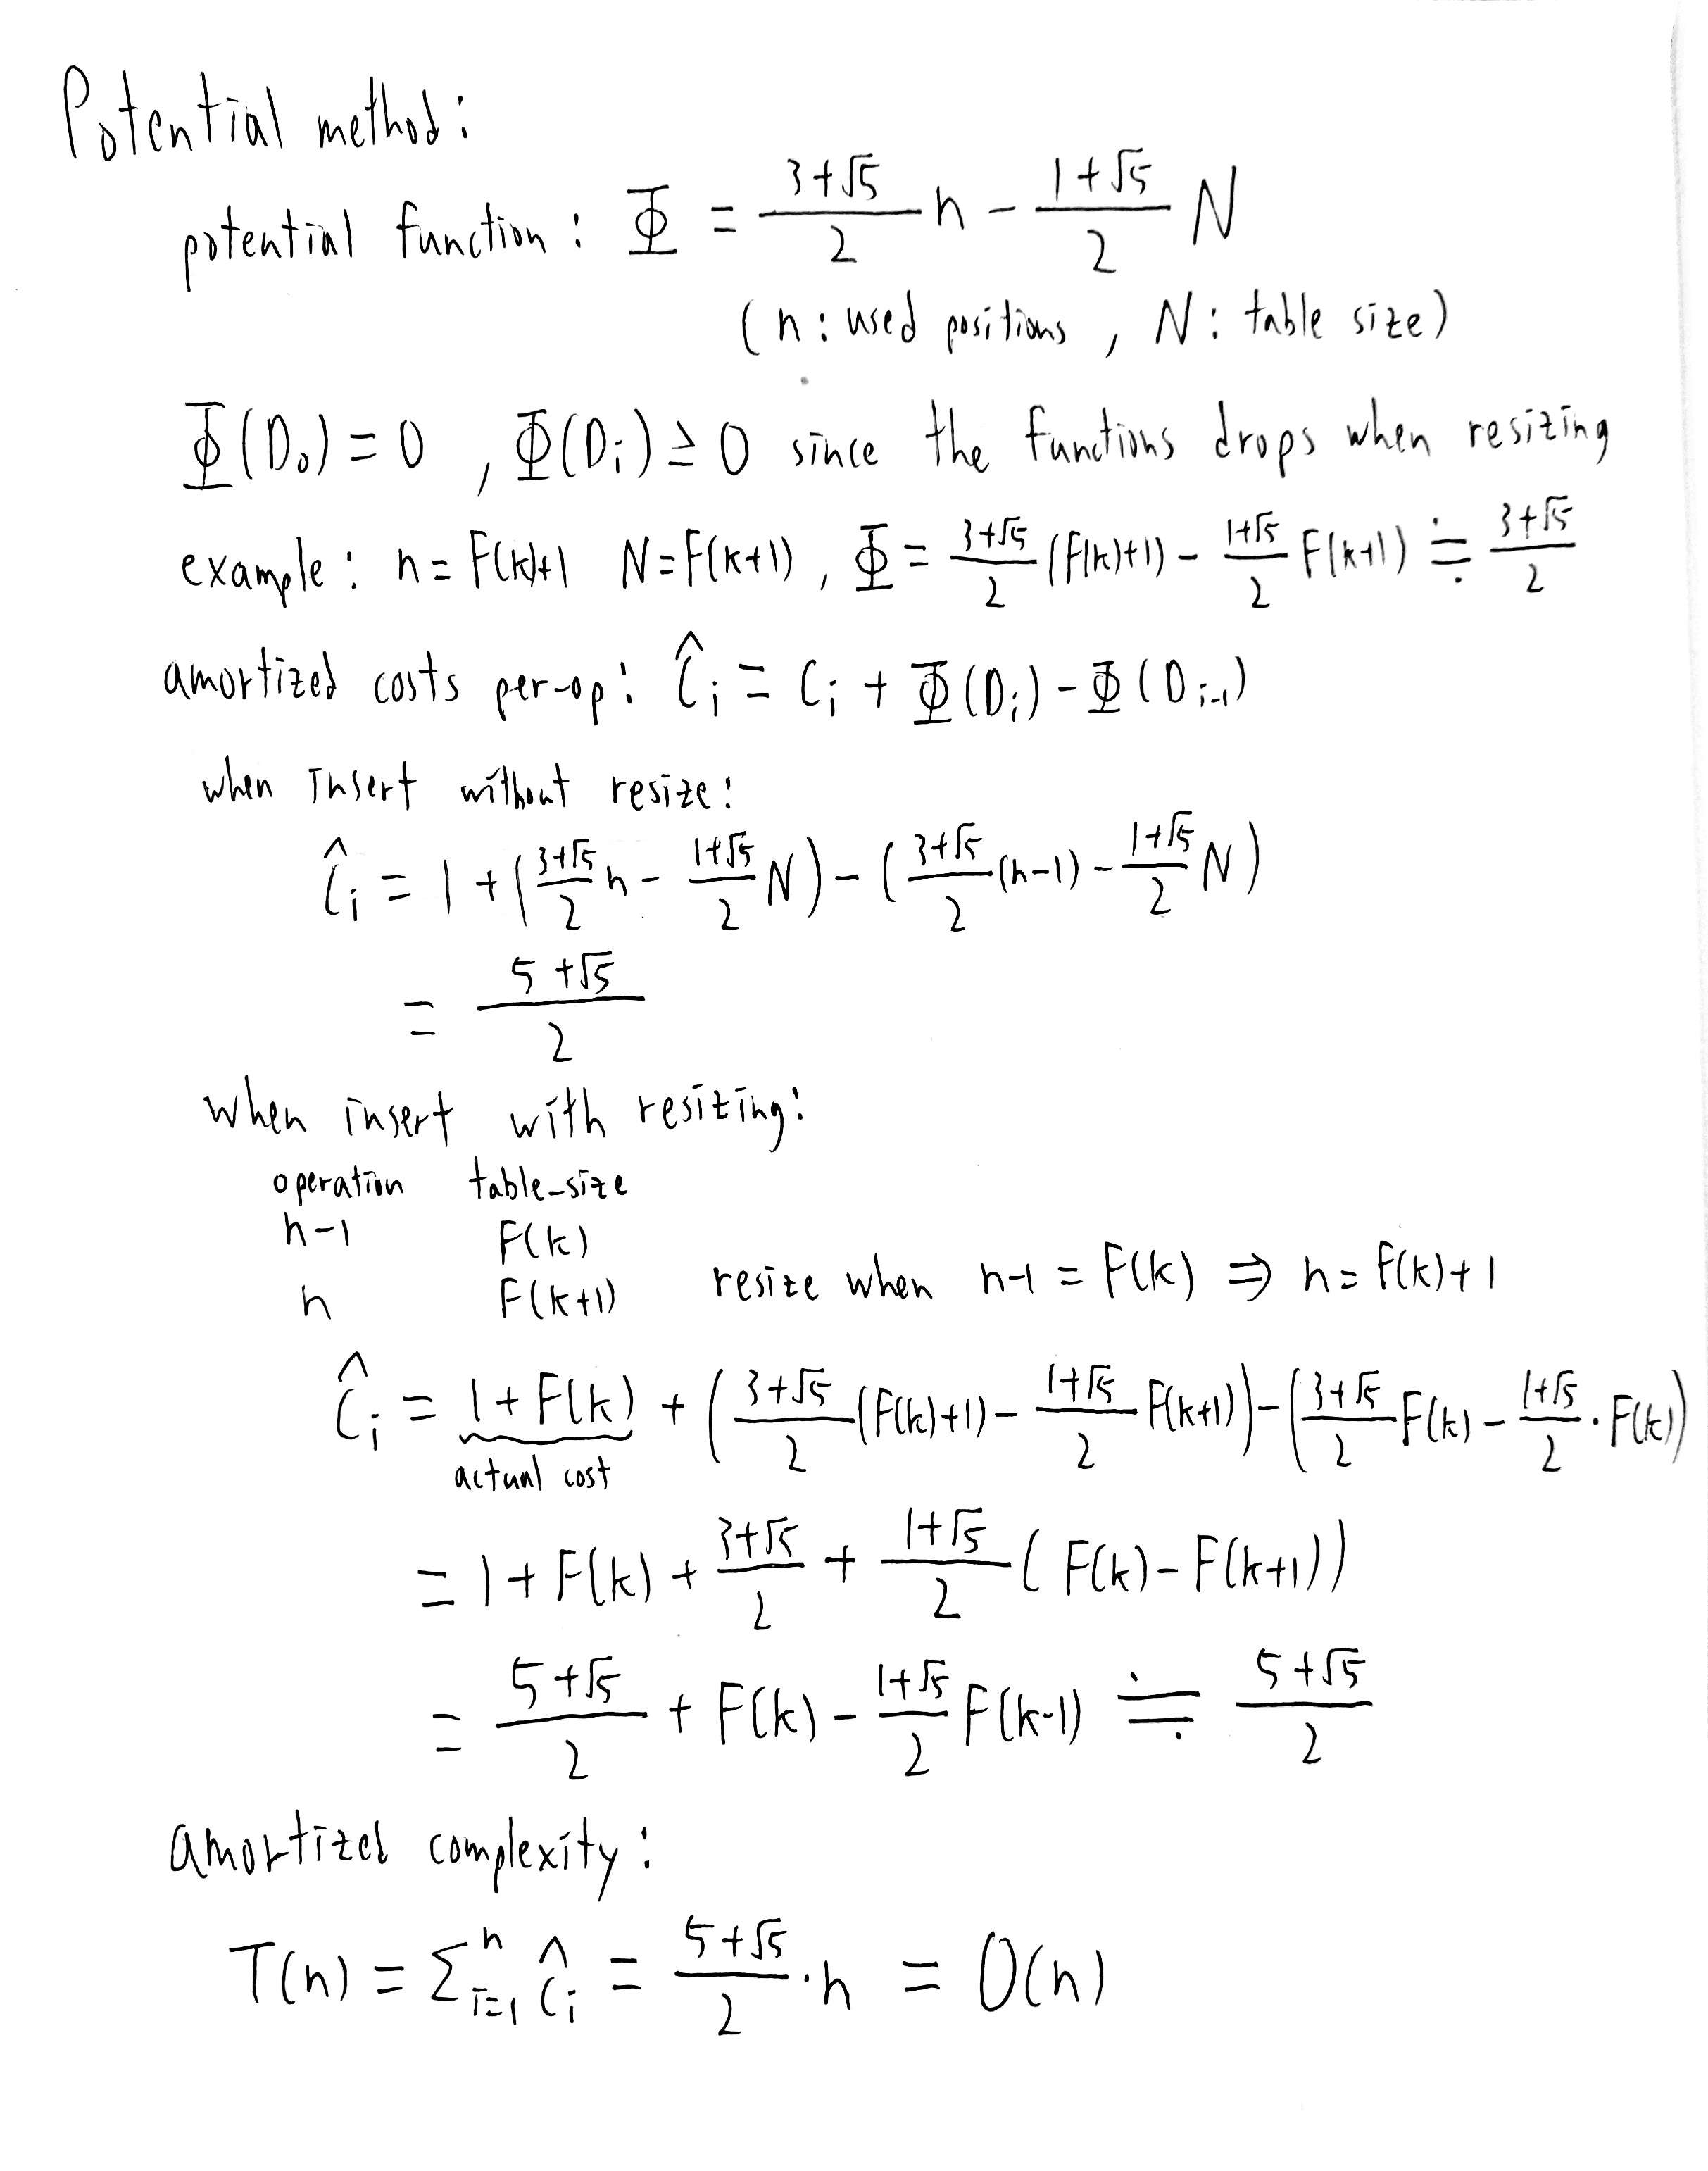 Potential method:
potential function : Φ = (3+√5)/2 n - (1+√5)/2 N
(n : used positions , N : table size)
Φ(D₀) = 0 , Φ(Dᵢ) ≥ 0 since the functions drops when resizing
example : n = F(k)+1 N = F(k+1) , Φ = (3+√5)/2 (F(k)+1) - (1+√5)/2 F(k+1) ≒ (3+√5)/2
amortized costs per-op : Ĉᵢ = Cᵢ + Φ(Dᵢ) - Φ(Dᵢ₋₁)
when insert without resize :
Ĉᵢ = 1 + ((3+√5)/2 n - (1+√5)/2 N) - ((3+√5)/2 (n-1) - (1+√5)/2 N)
= (5+√5)/2
when insert with resizing :
operation table-size
n-1 F(k)
n F(k+1) resize when n-1 = F(k) ⇒ n = F(k)+1
Ĉᵢ = 1 + F(k) + ((3+√5)/2 (F(k)+1) - (1+√5)/2 F(k+1)) - ((3+√5)/2 F(k) - (1+√5)/2 · F(k))
actual cost
= 1 + F(k) + (3+√5)/2 + (1+√5)/2 ( F(k) - F(k+1))
= (5+√5)/2 + F(k) - (1+√5)/2 F(k-1) ≒ (5+√5)/2
amortized complexity :
T(n) = Σⁿᵢ₌₁ Ĉᵢ = (5+√5)/2 · n = O(n)